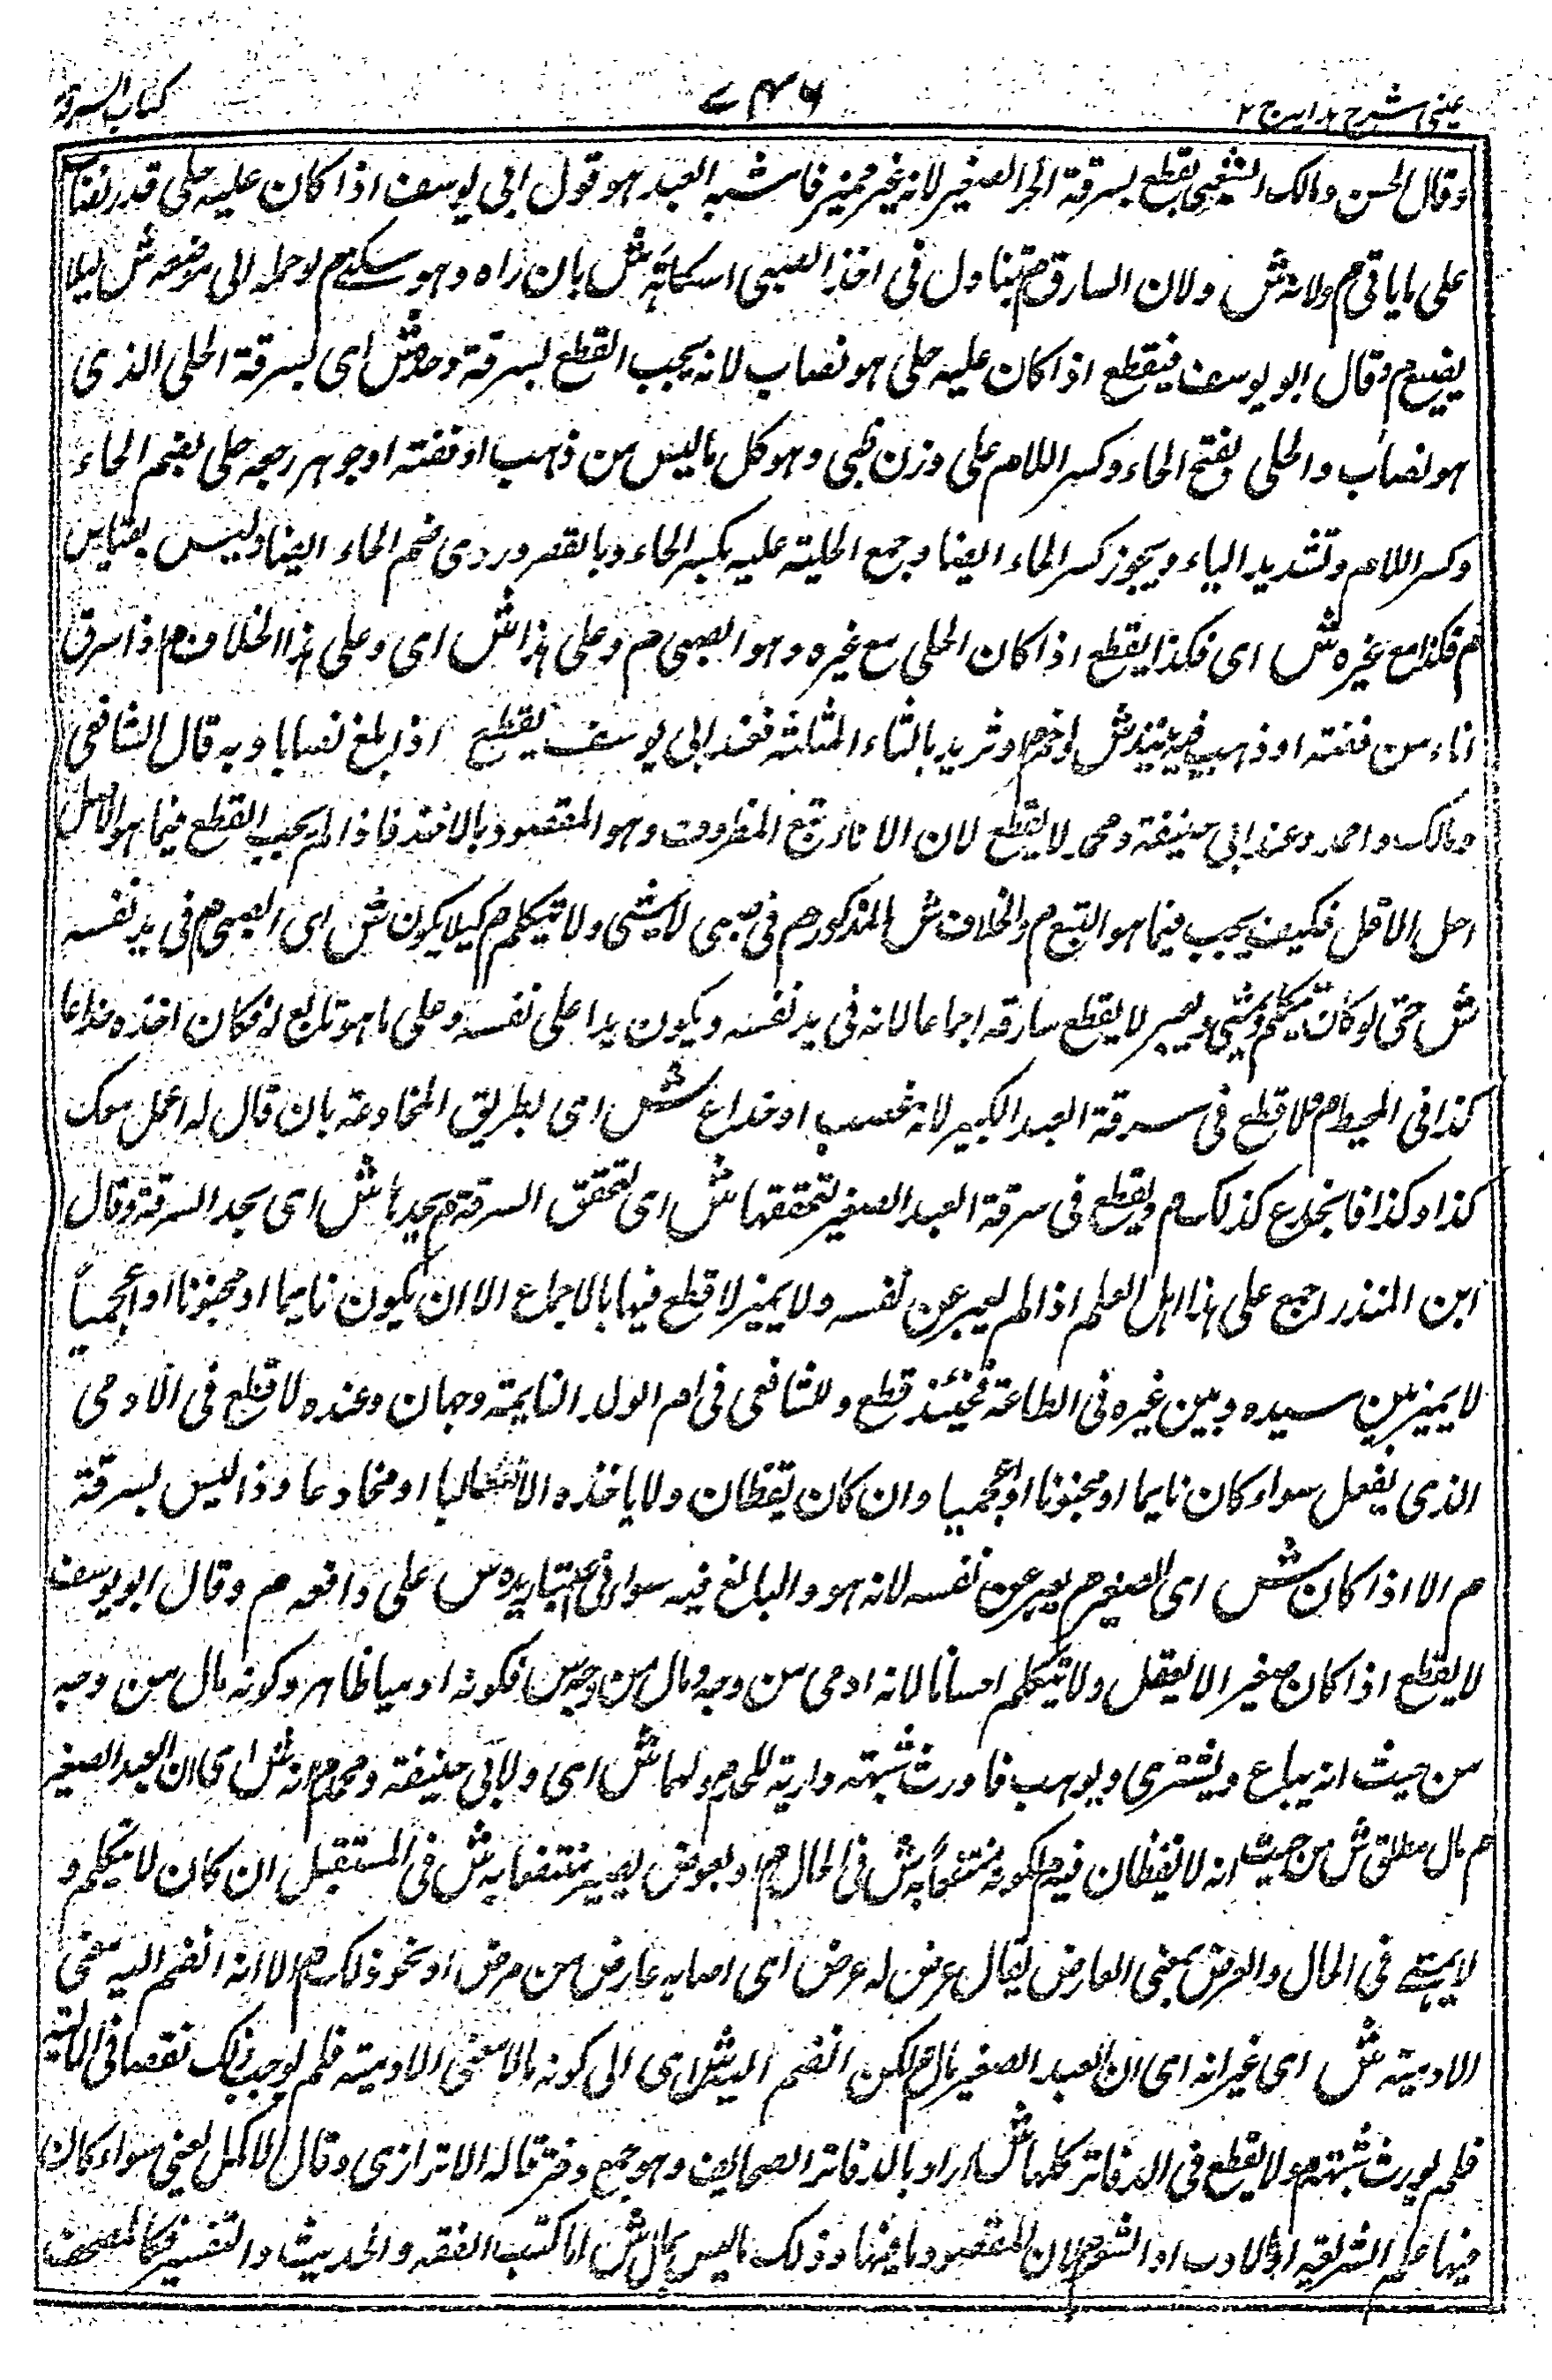 عینی شرح ہدایہ ج ۲
۷۴۶
کتاب السرقة
وقال الحسن ومالک والشعبی یقطع بسرقة الحر الصغیر لانه غیر ممیز فاشبه العبد هو قول ابی یوسف اذا کان علیه حلی قدر نصاب
علی ما یاتی م ولانه ش ولان السارق م یتناول فی اخذ الصبی اسکاته ش بان راه وهو یبکی م او حمله الی مرضعه ش لئلا
یضیع م وقال ابو یوسف یقطع اذا کان علیه حلی هو نصاب لانه یجب القطع بسرقة وحده ش ای بسرقة الحلی الذی
هو نصاب والحلی بفتح الحاء وکسر اللام علی وزن ظبی وهو کل ما لیس من ذهب او فضته او جوهر وجمعه حلی بضم الحاء
وکسر اللام وتشدید الیاء ویجوز کسر الحاء ایضا وجمع الحلیة علیه بکسر الحاء وبالقصر وروی ضم الحاء ایضا ولیس بقیاس
م فکذا مع غیره ش ای فکذا یقطع اذا کان الحلی مع غیره وهو الصبی م وعلی هذا ش ای وعلی هذا الخلاف م اذا سرق
اناء من فضته او ذهب فیه نبیذ ش او خمر م او ثرید بالثاء المثلثة فعند ابی یوسف یقطع اذا بلغ نصابا وبه قال الشافعی
ومالک واحمد وعند ابی حنیفة ومحمد لا یقطع لان الاناء تبع المظروف وهو المقصود بالاخذ فاذا لم یجب القطع فیما هو الاصل
فکیف یجب فیما هو التبع م والخلاف ش المذکور م فی صبی لا یمشی ولا یتکلم م کیلا یکون ش ای الصبی م فی ید نفسه
ش حتی لو کان یتکلم ویمشی ویعبر لا یقطع سارقه اجماعا لانه فی ید نفسه ویکون یدا علی نفسه وعلی ما هو تابع له فکان اخذه خداعا
کذا فی المحیط م ولا قطع فی سرقة العبد الکبیر لانه غصب او خداع ش ای بطریق المخادعة بان قال له اعمل معک
کذا وکذا فانخدع کذلک م ویقطع فی سرقة العبد الصغیر لتحققها ش ای لتحقق السرقة م بحدها ش ای بحد السرقة وقال
ابن المنذر اجمع علی هذا اهل العلم اذا لم یعبر عن نفسه ولا یمیز لا قطع فیها بالاجماع الا ان یکون نایما او مجنونا او اعجمیاً
لا یمیز بین سیده وبین غیره فی الطاعة فحینئذ قطع وللشافعی فی ام الولد النایمة وجهان وعنده لا قطع فی الآدمی
الذی یفعل سواء کان نایما او مجنونا او اعجمیا وان کان یقظان ولا یاخذه الا مغالبا او مخادعا وذا لیس بسرقة
م الا اذا کان ش ای الصغیر م یعبر عن نفسه لانه هو والبالغ فیه سواء فی اعتبار یده ش علی وافعه م وقال ابو یوسف
لا یقطع اذا کان صغیرا لا یعقل ولا یتکلم استحسانا لانه آدمی من وجه ومال من وجه ش فکونه آدمیا ظاهر وکونه مال من وجه
من حیث انه یباع ویشتری ویوهب فاورث شبهته داریة للحد م ولهما ش ای ولابی حنیفة ومحمد م انه ش ای ان العبد الصغیر
م مال مطلق ش من حیث انه لا نقصان فیه م لکونه منتفعاً به ش فی الحال م او بعرض یصیر منتفعا به ش فی المستقبل ان کان لا یتکلم و
لا یمشی فی الحال والعرض بمعنی العارض یقال عرض له عرض ای اصابه عارض من مرض او نحو ذلک م الا انه انضم الیه معنی
الادمیته ش ای غیر انه ای ان العبد الصغیر مال م لکن انضم الیه ش ای الی کونه مالا معنی الادمیته فلم یوجب ذلک نقصا فی المالیة
فلم یورث شبهته م ولا یقطع فی الدفاتر کلها ش اراد بالدفاتر الصحایف وهو جمع دفتر قاله الاترازی وقال الاکمل یعنی سواء کان
فیها علم الشریعة او الادب او الشعر م لان المقصود ما فیها وذلک لیس بمال ش اما کتب الفقه والحدیث والتفسیر فکالمصحف